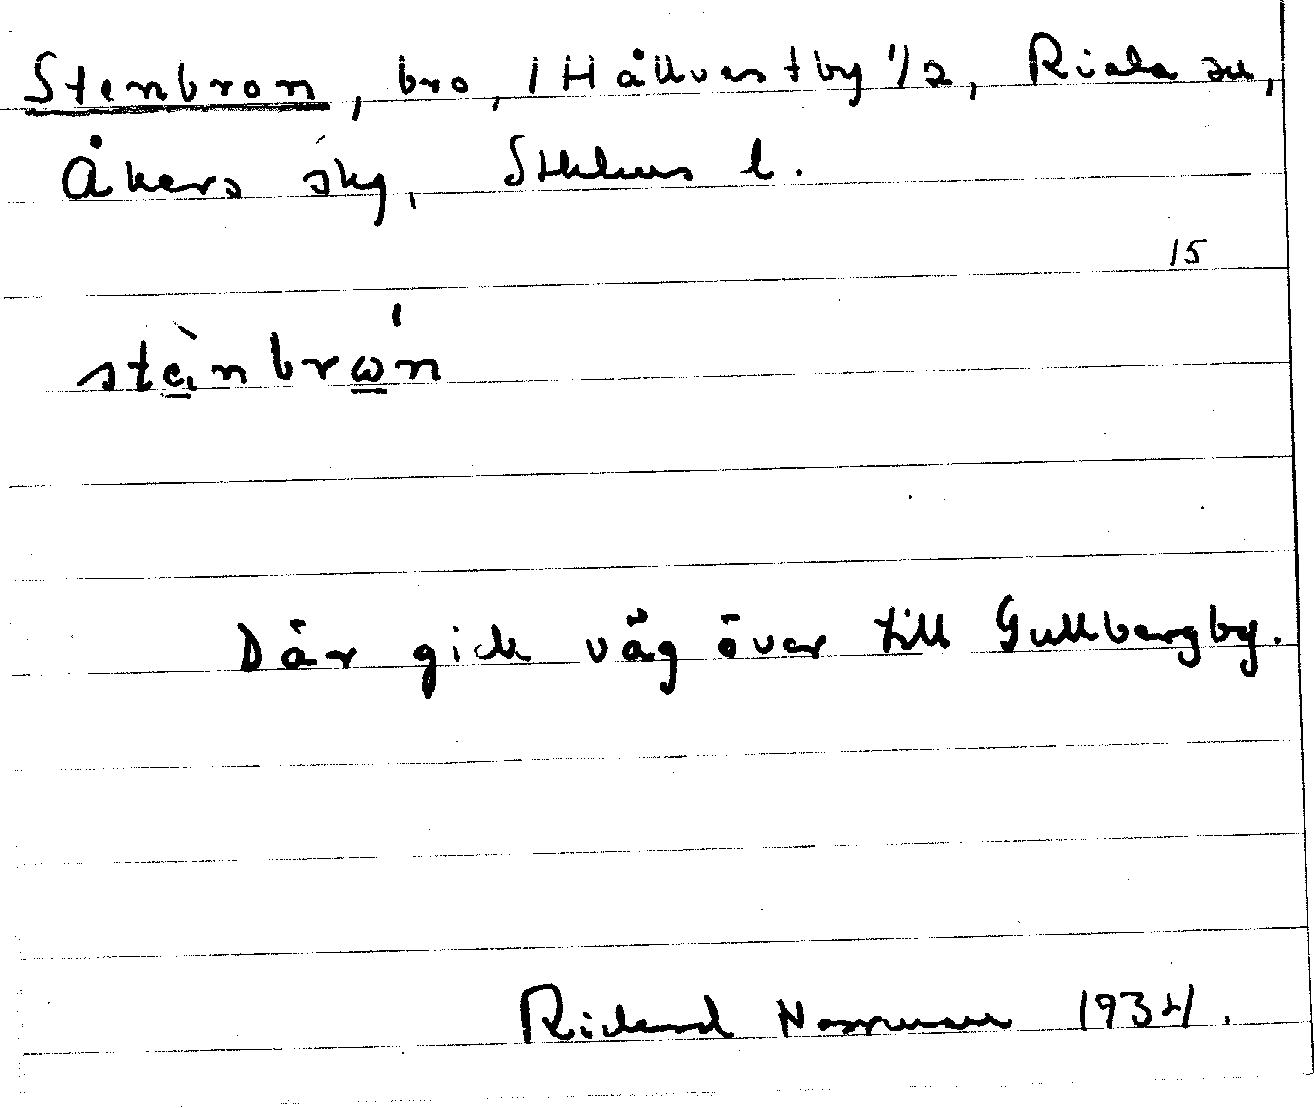 Stenbron, bro, / Hållvestby 1/2, Riala sn,
Åkers skg, Sthlms l.
15
stènbrω´n
Där gick väg över till Gullbergby.
Rickard 1934.